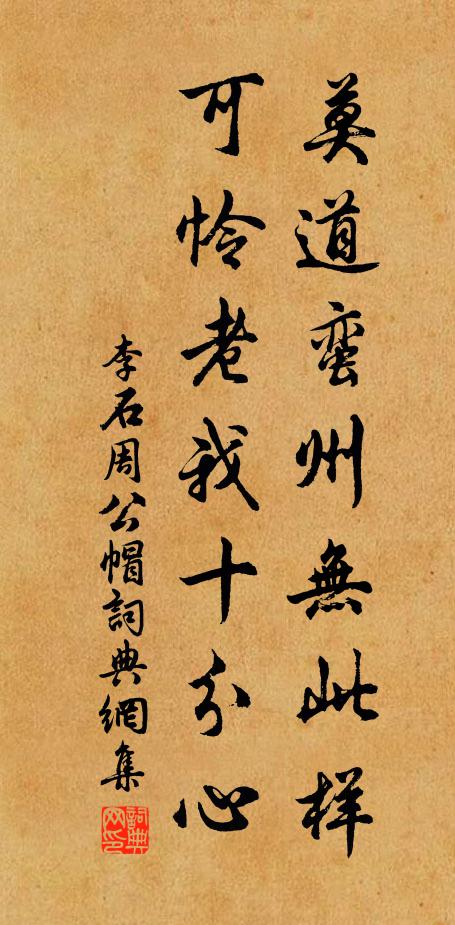 莫道蛮州無此样
可怜老我十分心
李石周公帽詞典網集
詞典网印